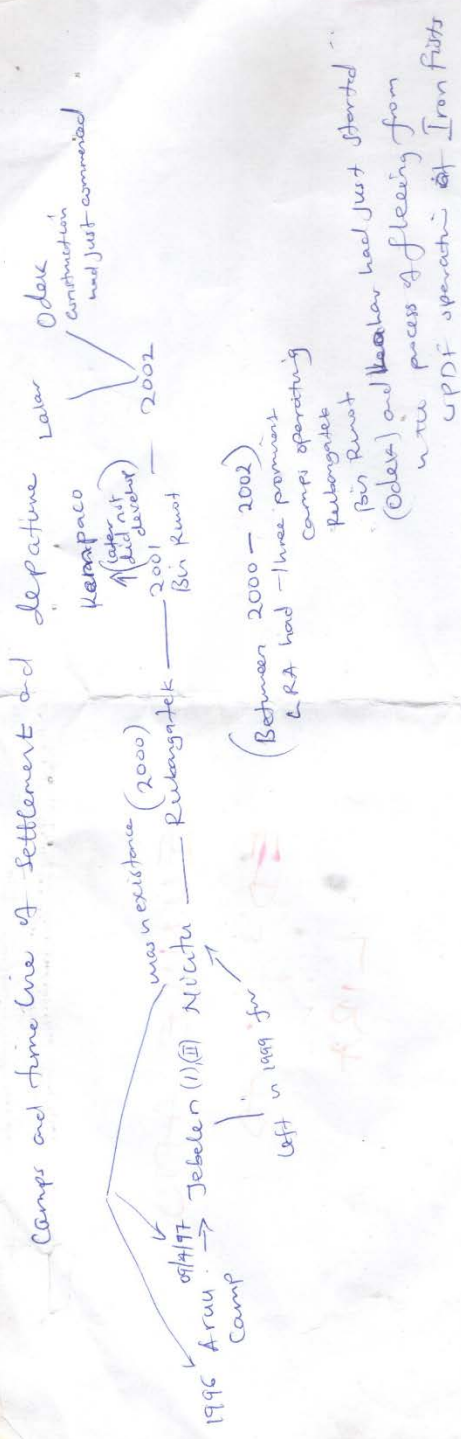 Camps and time line of Settlement and depature
1996 Aruu
Camp
09/4/97
→ Jebelen (I)(II)
Nicitu
left in 1999 for
was in existance (2000)
Rubangatek
2001
Bin Rwot
paco
(later
did not
develop)
2002
Lalar
Odek
Construction
had just commenced
(Between 2000 – 2002)
LRA had – three prominent
camps operating
Rubangatek
Bin Rwot
(Odek) and had just started
in the process of fleeing from
UPDF operation Iron Fists